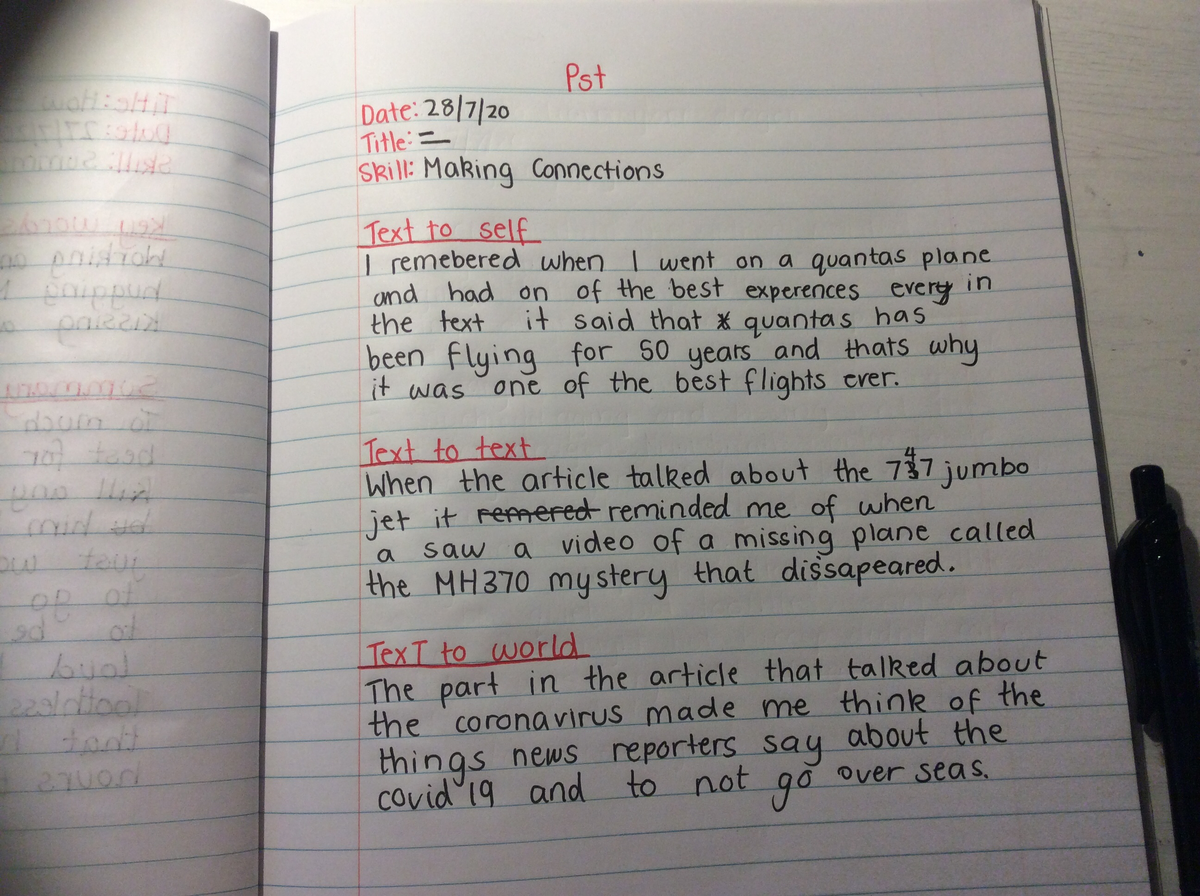 Pst
Date: 28/7/20
Title: =
Skill: Making Connections
Text to self
I remebered when I went on a quantas plane
and had on of the best experences every in
the text it said that quantas has
been flying for 50 years and thats why
it was one of the best flights ever.
Text to text
When the article talked about the 747 jumbo
jet it remered reminded me of when
a saw a video of a missing plane called
the MH370 mystery that dissapeared.
TexT to world
The part in the article that talked about
the coronavirus made me think of the
things news reporters say about the
covid 19 and to not go over seas.